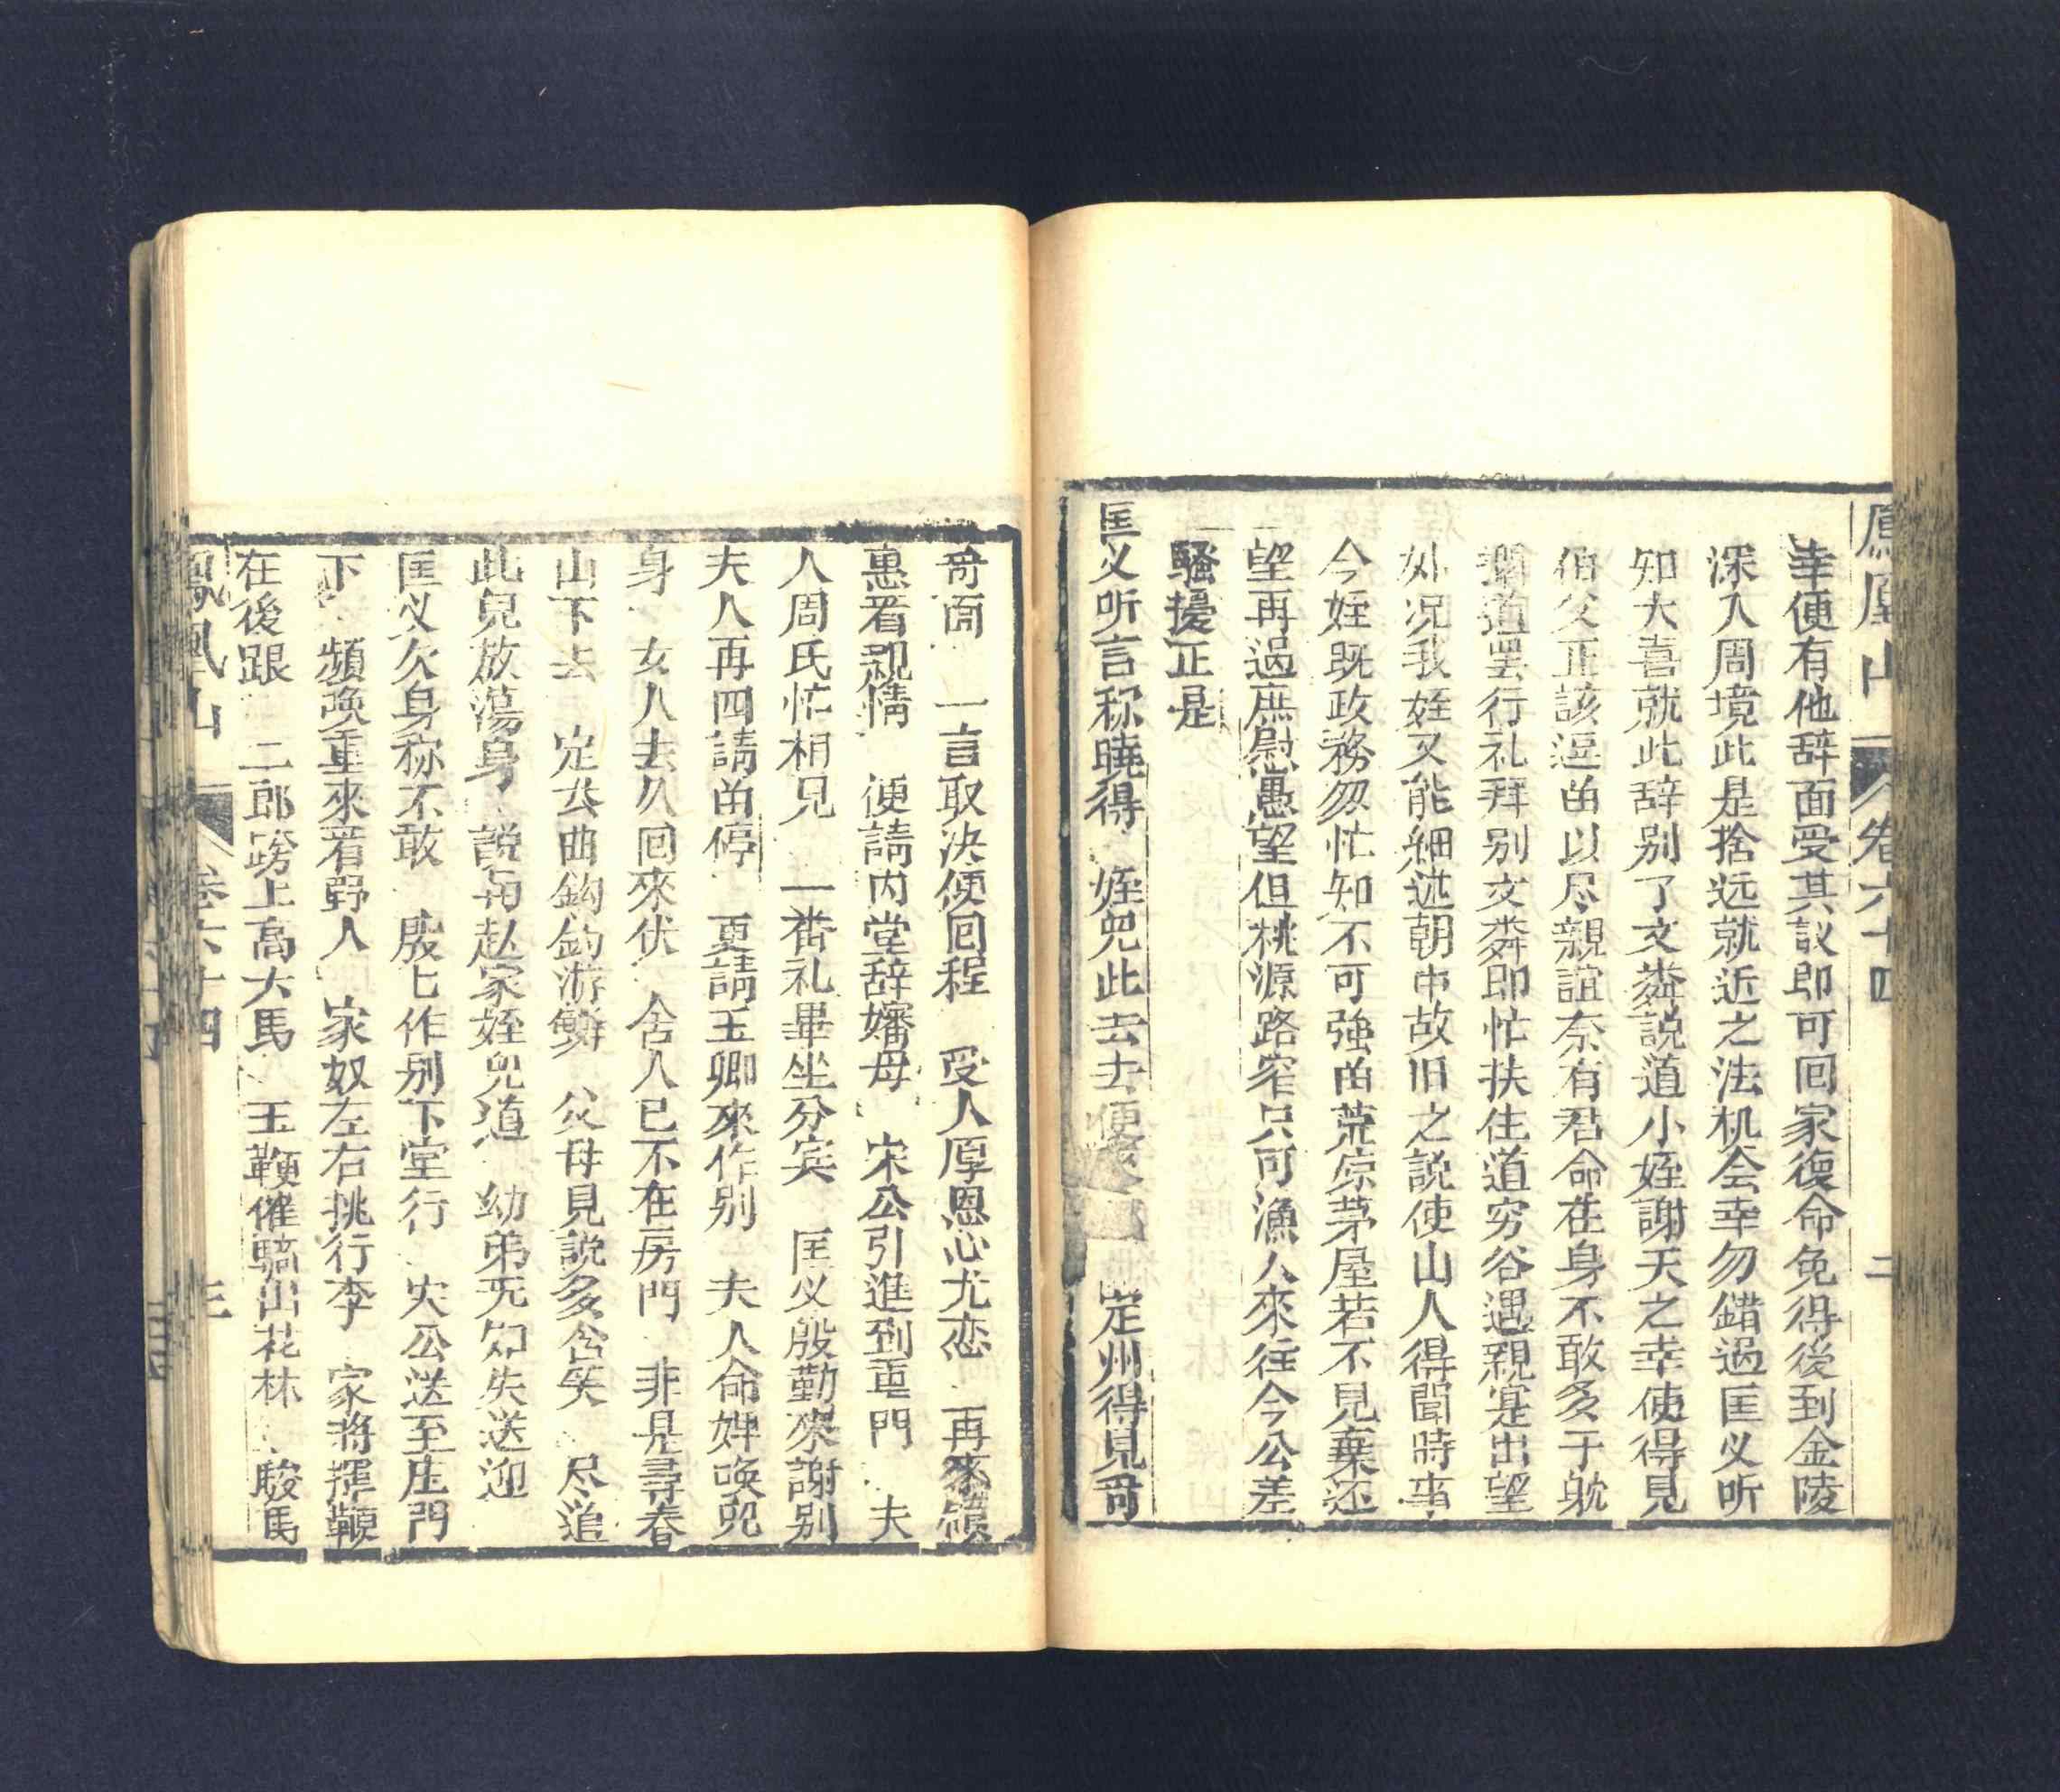 鳳凰山 卷六十四 二
幸便有他辞面受其議即可回家復命免得後到金陵
深入周境此是捨远就近之法机会幸勿錯過匡义听
知大喜就此辞别了文粦說道小姪謝天之幸使得見
伯父正該逗畄以尽親誼奈有君命在身不敢多于躭
擱道罢行礼拜别文粦即忙扶住道穷谷遇親寔出望
外况我姪又能細述朝中故旧之説使山人得聞時事
今姪既政務匆忙知不可強畄荒凉茅屋若不見棄还
望再過庶慰愚望但桃源路窄只可漁人來往今公差
騷擾正是
匡义听言称曉得 姪兒此去去便 定州得見哥
哥面 一言取決便回程 受人厚恩心尤恋 再來領
惠看親情 便請内堂辞嬸母 宋公引進到重門 夫
人周氏忙相見 一番礼畢坐分宾 匡义殷勤來謝别
夫人再四請畄停 更請玉卿來作别 夫人命婢唤兒
身 女人去久回來伏 舍人已不在房門 非是尋春
山下去 定去曲鈎釣游鱗 父母見說多含笑 尽道
此兒放蕩身 說与赵家姪兒道 幼弟无知失送迎
匡义欠身称不敢 殷匕作别下堂行 宋公送至庄門
下 頻唤重來看野人 家奴左右挑行李 家將揮鞭
在後跟 二郎跨上高大馬 玉鞭催驕出花林 駿馬
鳳凰山 卷六十四 三